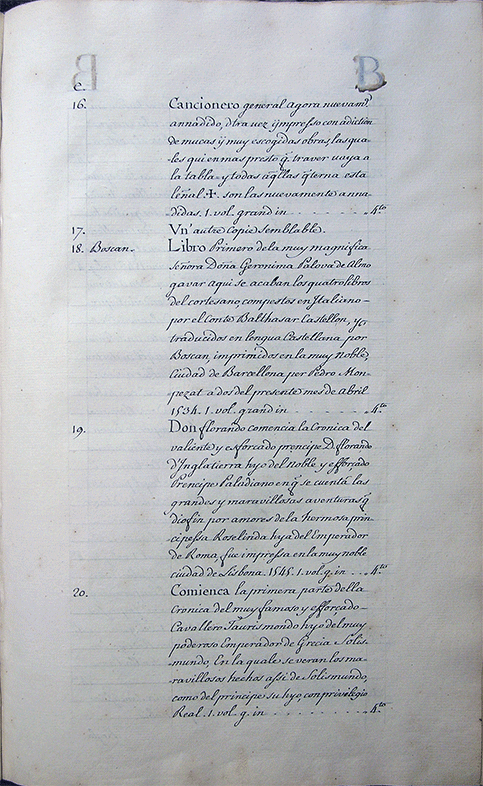 B
C.
16. Cancionero general agora nuevamt.
annadido, dtra vez ÿmpresso con adiction
de mucas ÿ muy escogidas obras, las qua-
les qui en mas presto q̃ traver vaya a
la tabla, y todas aq̃llas q̃ terna esta
señal. ✠. son las nuevamente anna-
didas. 1. vol. grand in - - - - - - - 4.to
17. Vn' autre Copie semblable.
18. Boscan. Libro Primero de la muy magnifica
señora Doña Geronima Palova de Almo
gavar aqui se acaban los quatro libros
del cortesano, compuestos en Jtaliano -
por el Conte Balthasar Castellon, y
traducidos en lengua Castellana por
Boscan, imprimidos en la muy Noble,
Ciudad de Barcellona per Pedro Mon-
pezat a dos del presente mes de Abril
1534. 1. vol. grand in - - - - - - - 4.to
19. Don florando comencia la Cronica del
valiente y esforcado prencipe D. florando
d'Inglatierra hyo del Noble, y esforcado
Prencipe Paladiano en q̃ se cuentã las
grandes y maravillosas aventuras q̃
dio fin por amores de la hermosa prin-
cipessa Roselinda hya del Emperador
de Roma, fue impressa en la muy noble
ciudad de Lisbona. 1545. 1. vol. g. in - - - 4.to
20. Comienca la primera parte della
Cronica del muy famoso y esforcado -
Cavallero Taurismondo hyo del muy
poderoso Emperador de Grecia Solis-
mundo, En la quale se veran los ma-
ravillosos hechos assi de Solismundo,
como del principe su hyo, con privilegio
Real. 1. vol. g. in - - - - - - - - 4.to